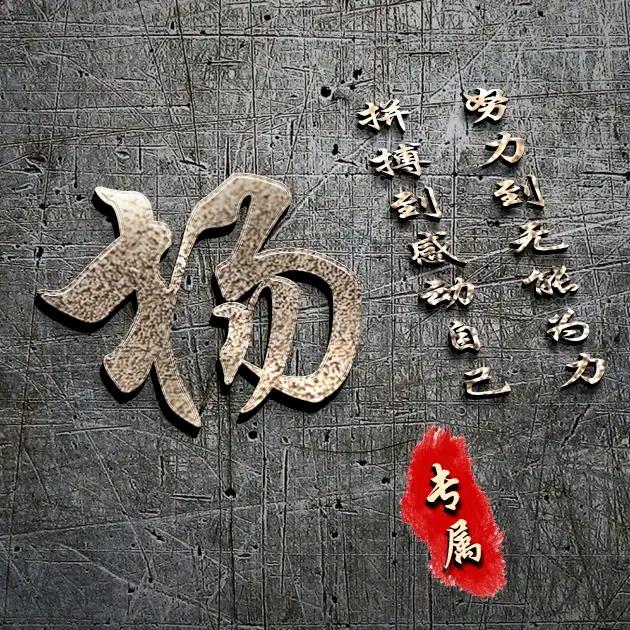 杨
努力到无能为力
拼搏到感动自己
专属